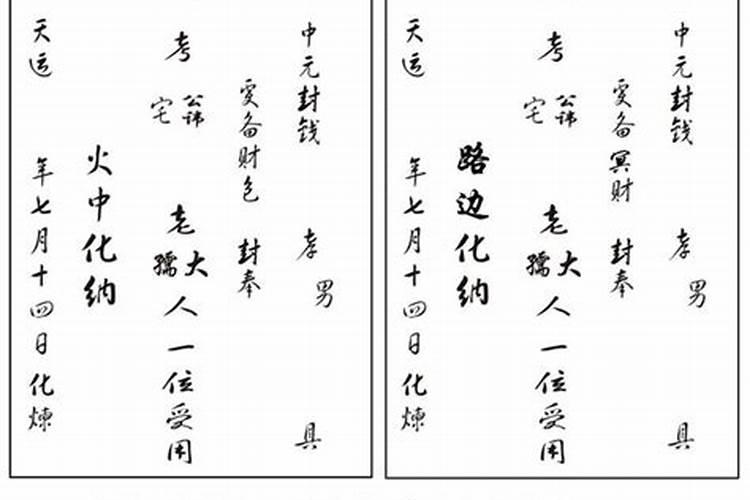 中元封钱 孝男 具
爰备冥财 封奉
考 公讳宅 老大孺人一位受用
路边化纳
天运 年七月十四日化煉
中元封钱 孝男 具
爰备财色 封奉
考 公讳宅 老大孺人一位受用
火中化纳
天运 年七月十四日化煉